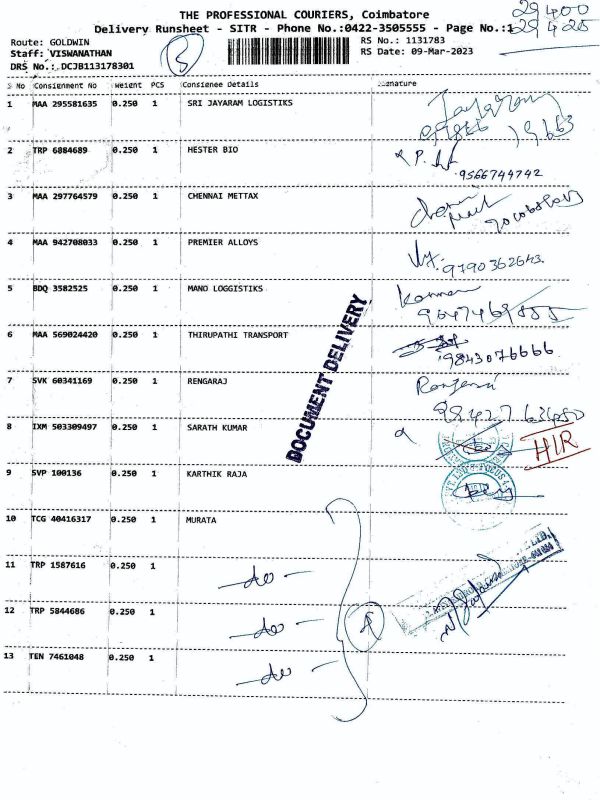 THE PROFESSIONAL COURIERS, Coimbatore
Delivery Runsheet - SITR - Phone No.:0422-3505555 - Page No.:1
29400
29425
Route: GOLDWIN
Staff: VISWANATHAN
DRS No.: DCJB113178301
RS No.: 1131783
RS Date: 09-Mar-2023
S No Consignment No Weight PCS Consignee Details Signature
1 MAA 295581635 0.250 1 SRI JAYARAM LOGISTIKS
2 TRP 6884689 0.250 1 HESTER BIO 9566744742
3 MAA 297764579 0.250 1 CHENNAI METTAX
4 MAA 942708033 0.250 1 PREMIER ALLOYS 9790362643.
5 BDQ 3582525 0.250 1 MANO LOGGISTIKS
6 MAA 569024420 0.250 1 THIRUPATHI TRANSPORT 9843076666
7 SVK 60341169 0.250 1 RENGARAJ
8 IXM 503309497 0.250 1 SARATH KUMAR HIR
9 SVP 100136 0.250 1 KARTHIK RAJA
10 TCG 40416317 0.250 1 MURATA
11 TRP 1587616 0.250 1 - do -
12 TRP 5844686 0.250 1 - do -
13 TEN 7461048 0.250 1 - do -
DOCUMENT DELIVERY